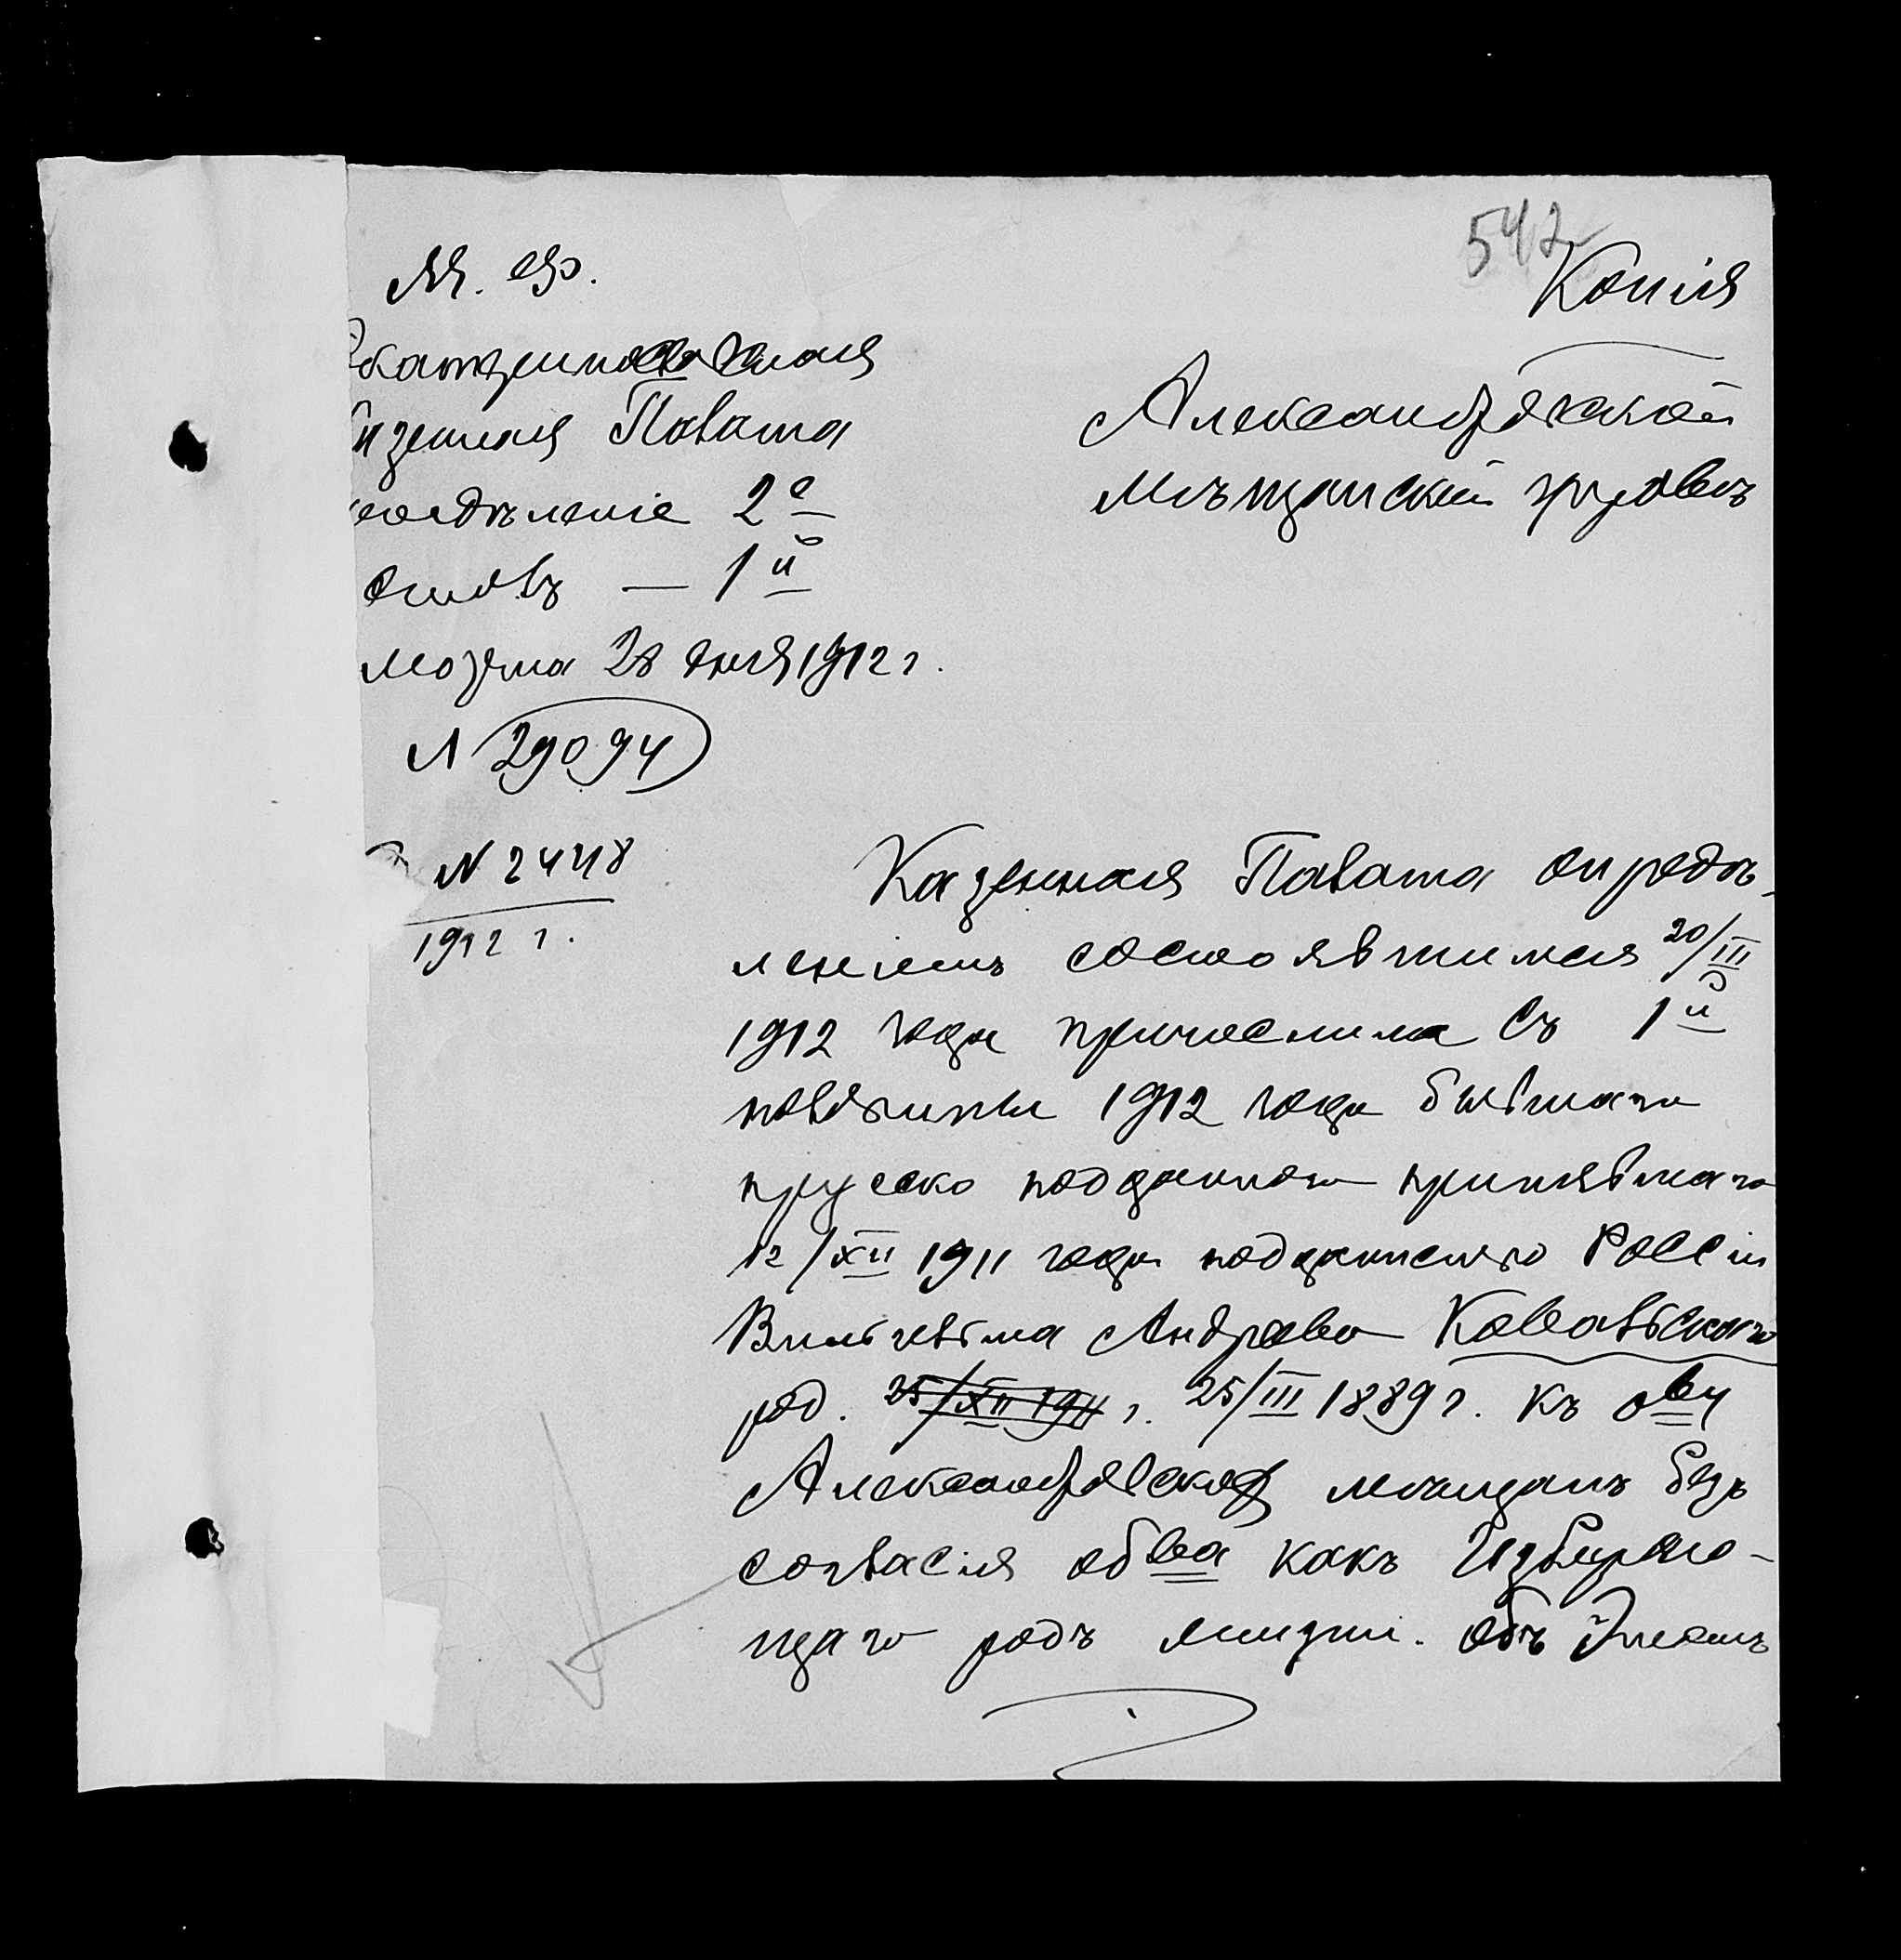 542
Копія
М. Ф.
Екатеринославская
Казенная Палата
Отделѣніе 2е
Столъ — 1й
Марта 28 дня 1912 г.
N 29094
N 2448
1912 г.
Александровской
Мѣщанской управѣ
Казенная Палата опредѣ-
леніемъ состоявшимся 20/III
1912 года причислила съ 1й
половины 1912 года бывшаго
прусско подданного принявшаго
12/XII 1911 года подданство Россіи
Вильгельма Андреева Ковальскаго
род. 25/XII 1911 г. 25/III 1889 г. къ ову
Александровскихъ мѣщанъ безъ
согласія обва какъ избираю-
щаго родъ жизни. Объ этомъ